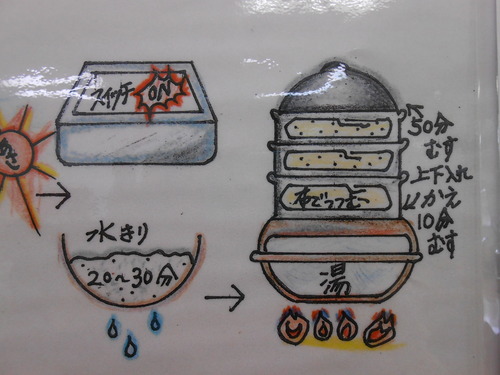 スイッチ
ON
水きり
20〜30分
50分
むす
上下入れ
かえ
10分
むす
布でつつむ
湯